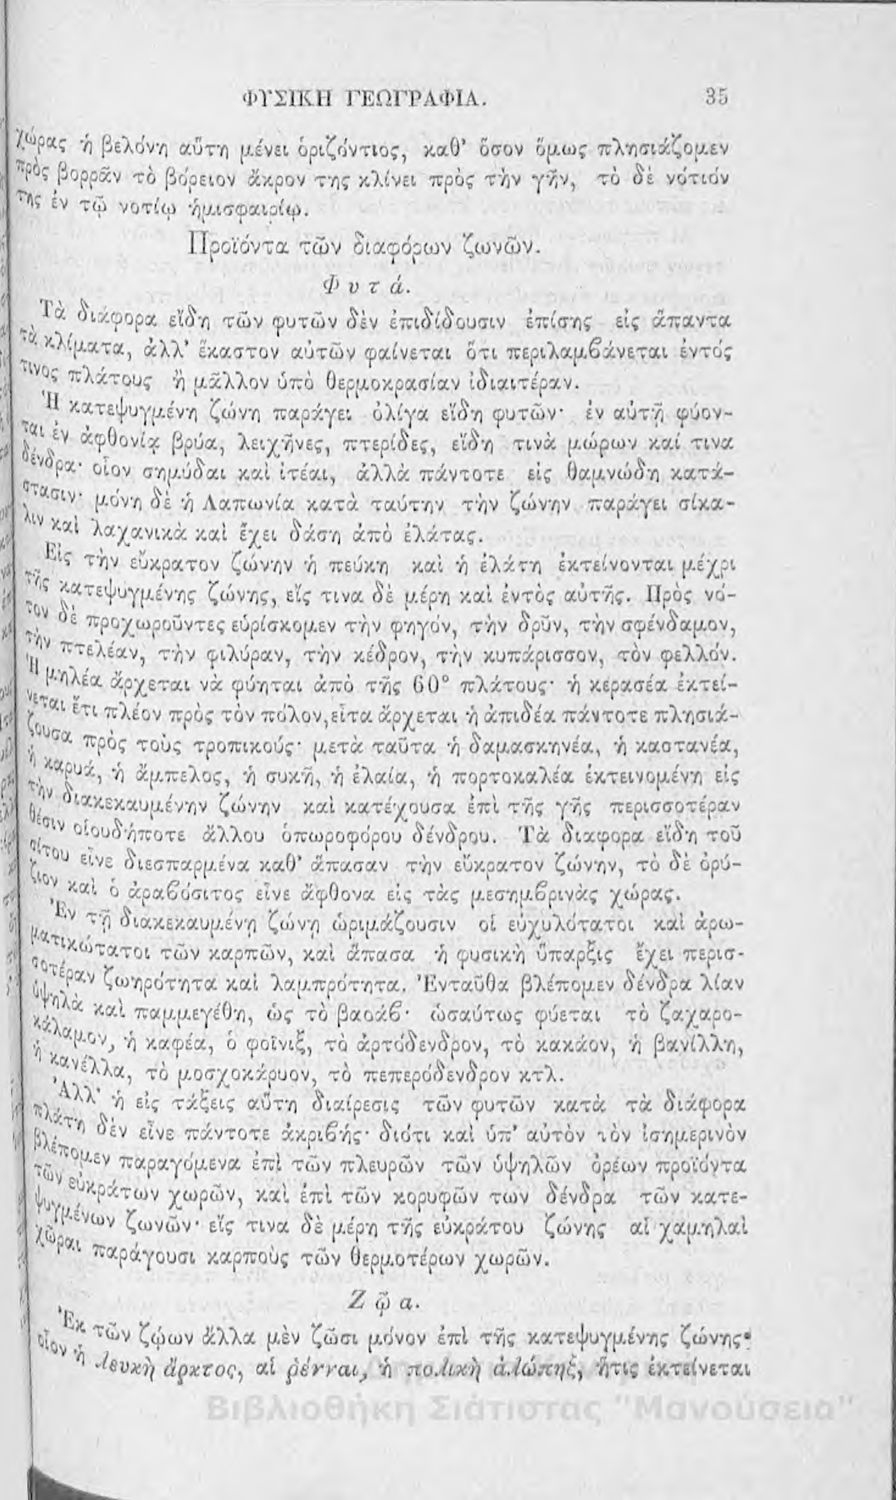 ΦΥΣΙΚΗ ΓΕΩΓΡΑΦΙΑ. 35
χώρας ἡ βελόνη αὕτη μένει ὁριζόντιος, καθ' ὅσον ὅμως πλησιάζομεν
πρὸς βορρᾶν τὸ βόρειον ἄκρον της κλίνει πρὸς τὴν γῆν, τὸ δὲ νότιόν
της ἐν τῷ νοτίῳ ἡμισφαιρίῳ.
Προϊόντα τῶν διαφόρων ζωνῶν.
Φυτά.
Τὰ διάφορα εἴδη τῶν φυτῶν δὲν ἐπιδίδουσιν ἐπίσης εἰς ἅπαντα
τὰ κλίματα, ἀλλ' ἕκαστον αὐτῶν φαίνεται ὅτι περιλαμβάνεται ἐντός
τινος πλάτους ἢ μᾶλλον ὑπὸ θερμοκρασίαν ἰδιαιτέραν.
Ἡ κατεψυγμένη ζώνη παράγει ὀλίγα εἴδη φυτῶν· ἐν αὐτῇ φύον-
ται ἐν ἀφθονίᾳ βρύα, λειχῆνες, πτερίδες, εἴδη τινὰ μώρων καί τινα
δένδρα· οἷον σημύδαι καὶ ἰτέαι, ἀλλὰ πάντοτε εἰς θαμνώδη κατά-
στασιν· μόνη δὲ ἡ Λαπωνία κατὰ ταύτην τὴν ζώνην παράγει σίκα-
λιν καὶ λαχανικὰ καὶ ἔχει δάση ἀπὸ ἐλάτας.
Εἰς τὴν εὔκρατον ζώνην ἡ πεύκη καὶ ἡ ἐλάτη ἐκτείνονται μέχρι
τῆς κατεψυγμένης ζώνης, εἴς τινα δὲ μέρη καὶ ἐντὸς αὐτῆς. Πρὸς νό-
τον δὲ προχωροῦντες εὑρίσκομεν τὴν φηγόν, τὴν δρῦν, τὴν σφένδαμον,
τὴν πτελέαν, τὴν φιλύραν, τὴν κέδρον, τὴν κυπάρισσον, τὸν φελλόν.
Ἡ μηλέα ἄρχεται νὰ φύηται ἀπὸ τῆς 60° πλάτους· ἡ κερασέα ἐκτεί-
νεται ἔτι πλέον πρὸς τὸν πόλον, εἶτα ἄρχεται ἡ ἀπιδέα πάντοτε πλησιά-
ζουσα πρὸς τοὺς τροπικούς· μετὰ ταῦτα ἡ δαμασκηνέα, ἡ καστανέα,
ἡ καρυά, ἡ ἄμπελος, ἡ συκῆ, ἡ ἐλαία, ἡ πορτοκαλέα ἐκτεινομένη εἰς
τὴν διακεκαυμένην ζώνην καὶ κατέχουσα ἐπὶ τῆς γῆς περισσοτέραν
θέσιν οἱουδήποτε ἄλλου ὀπωροφόρου δένδρου. Τὰ διαφορα εἴδη τοῦ
σίτου εἶνε διεσπαρμένα καθ' ἅπασαν τὴν εὔκρατον ζώνην, τὸ δὲ ὀρύ-
ζιον καὶ ὁ ἀραβόσιτος εἶνε ἄφθονα εἰς τὰς μεσημβρινὰς χώρας.
Ἐν τῇ διακεκαυμένῃ ζώνῃ ὡριμάζουσιν οἱ εὐχυλότατοι καὶ ἀρω-
ματικώτατοι τῶν καρπῶν, καὶ ἅπασα ἡ φυσικὴ ὕπαρξις ἔχει περισ-
σοτέραν ζωηρότητα καὶ λαμπρότητα. Ἐνταῦθα βλέπομεν δένδρα λίαν
ὑψηλὰ καὶ παμμεγέθη, ὡς τὸ βαοάβ· ὡσαύτως φύεται τὸ ζαχαρο-
κάλαμον, ἡ καφέα, ὁ φοῖνιξ, τὸ ἀρτόδενδρον, τὸ κακάον, ἡ βανίλλη,
ἡ κανέλλα, τὸ μοσχοκάρυον, τὸ πεπερόδενδρον κτλ.
Ἀλλ' ἡ εἰς τάξεις αὕτη διαίρεσις τῶν φυτῶν κατὰ τὰ διάφορα
πλάτη δὲν εἶνε πάντοτε ἀκριβής· διότι καὶ ὑπ' αὐτὸν τὸν ἰσημερινὸν
βλέπομεν παραγόμενα ἐπὶ τῶν πλευρῶν τῶν ὑψηλῶν ὀρέων προϊόντα
τῶν εὐκράτων χωρῶν, καὶ ἐπὶ τῶν κορυφῶν των δένδρα τῶν κατε-
ψυγμένων ζωνῶν· εἴς τινα δὲ μέρη τῆς εὐκράτου ζώνης αἱ χαμηλαὶ
χῶραι παράγουσι καρποὺς τῶν θερμοτέρων χωρῶν.
Ζῷα.
Ἐκ τῶν ζῴων ἄλλα μὲν ζῶσι μόνον ἐπὶ τῆς κατεψυγμένης ζώνης·
οἷον ἡ λευκὴ ἄρκτος, αἱ ῥένναι, ἡ πολικὴ ἀλώπηξ, ἥτις ἐκτείνεται
Βιβλιοθήκη Σιάτιστας "Μανούσεια"